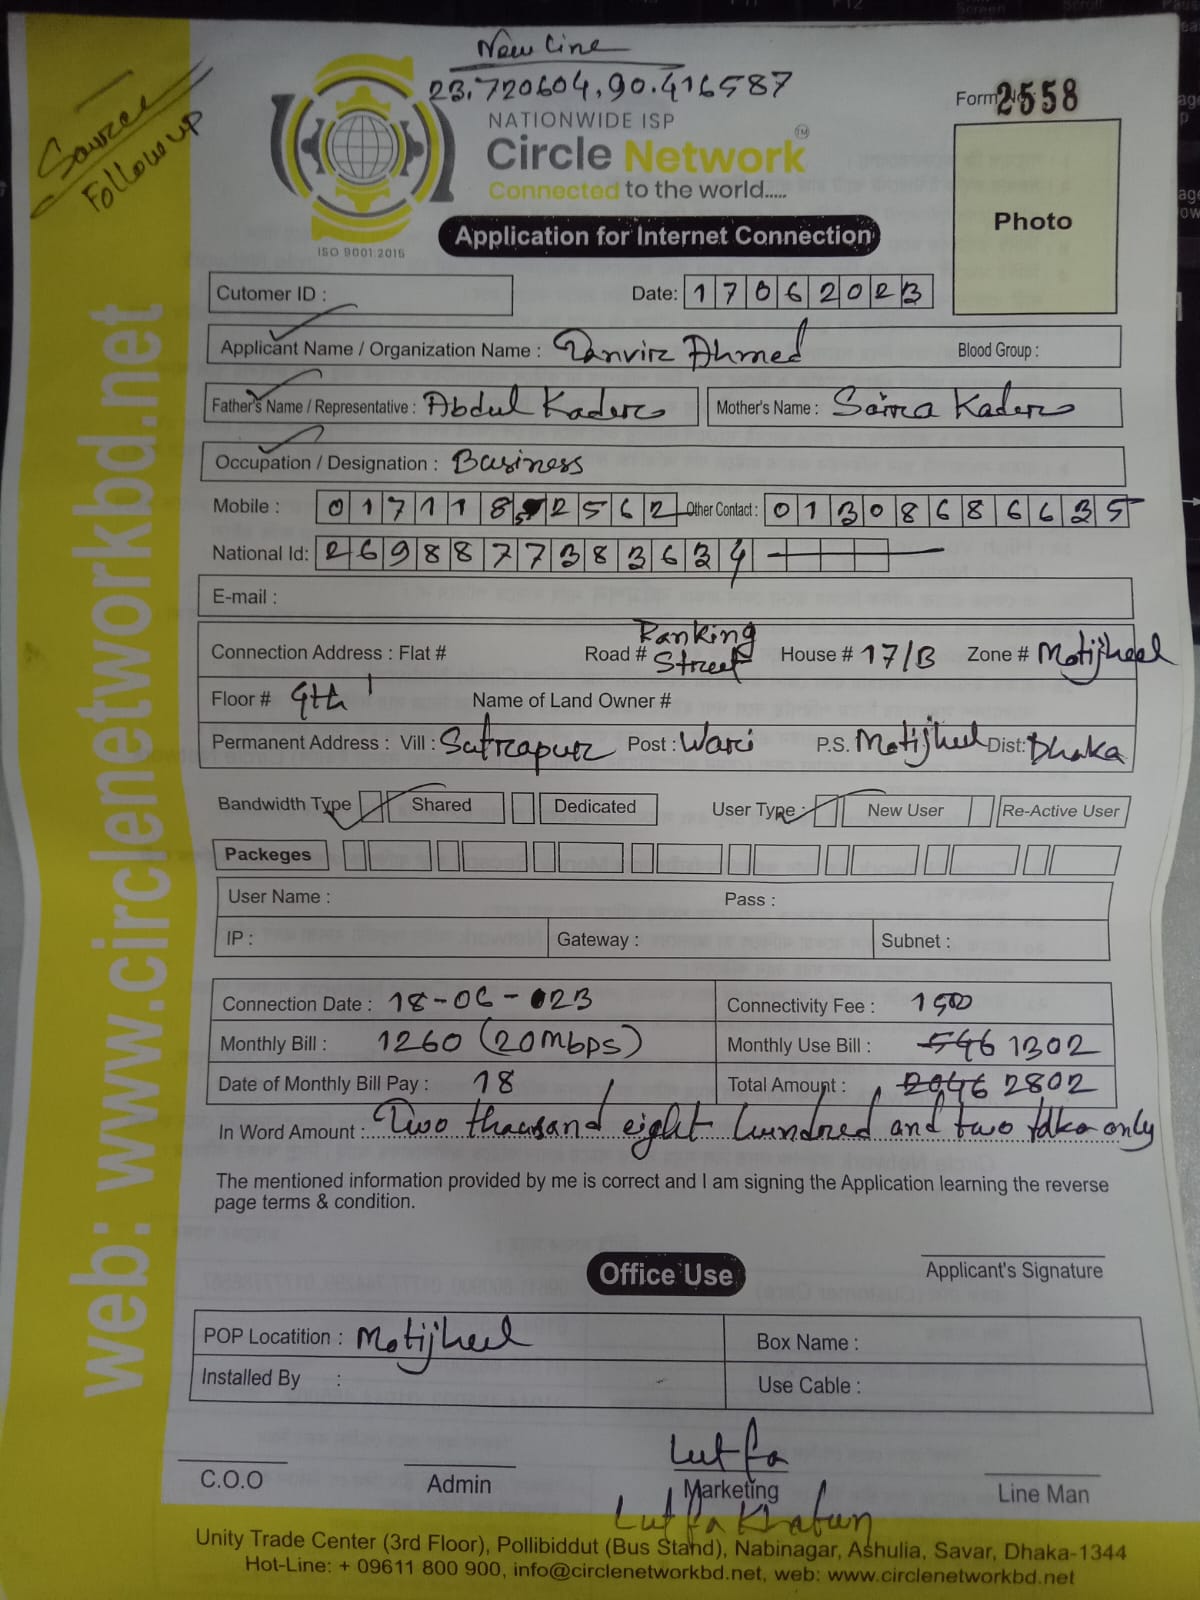 New Line
23.720604, 90.416587
Source
Follow up
NATIONWIDE ISP
Form No 2558
Circle Network TM
Connected to the world.....
ISO 9001:2015
Application for Internet Connection
Photo
Cutomer ID :
Date: 17062023
Applicant Name / Organization Name : Tanvir Ahmed Blood Group :
Father's Name / Representative : Abdul Kader Mother's Name : Saima Kader
Occupation / Designation : Business
Mobile : 017118 2562 Other Contact : 01308686635
National Id: 2698877383634
E-mail :
Connection Address : Flat # Road # Ranking Street House # 17/B Zone # Motijheel
Floor # 9th Name of Land Owner #
Permanent Address : Vill : Sutrapur Post : Wari P.S. Motijheel Dist: Dhaka
Bandwidth Type Shared Dedicated User Type : New User Re-Active User
Packeges
User Name : Pass :
IP : Gateway : Subnet :
Connection Date : 18-06-023 Connectivity Fee : 1500
Monthly Bill : 1260 (20Mbps) Monthly Use Bill : 546 1302
Date of Monthly Bill Pay : 18 Total Amount : 2046 2802
In Word Amount : Two thousand eight hundred and two taka only
The mentioned information provided by me is correct and I am signing the Application learning the reverse
page terms & condition.
Office Use
Applicant's Signature
POP Locatition : Motijheel Box Name :
Installed By : Use Cable :
Lutfa
C.O.O Admin Marketing Line Man
Lutfa Khatun
Unity Trade Center (3rd Floor), Pollibiddut (Bus Stand), Nabinagar, Ashulia, Savar, Dhaka-1344
Hot-Line: + 09611 800 900, info@circlenetworkbd.net, web: www.circlenetworkbd.net
web: www.circlenetworkbd.net